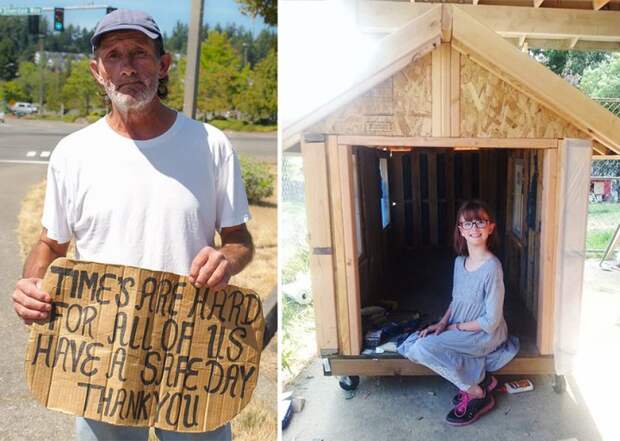 TIME'S ARE HARD
FOR ALL OF US
HAVE A SAFE DAY
THANK YOU